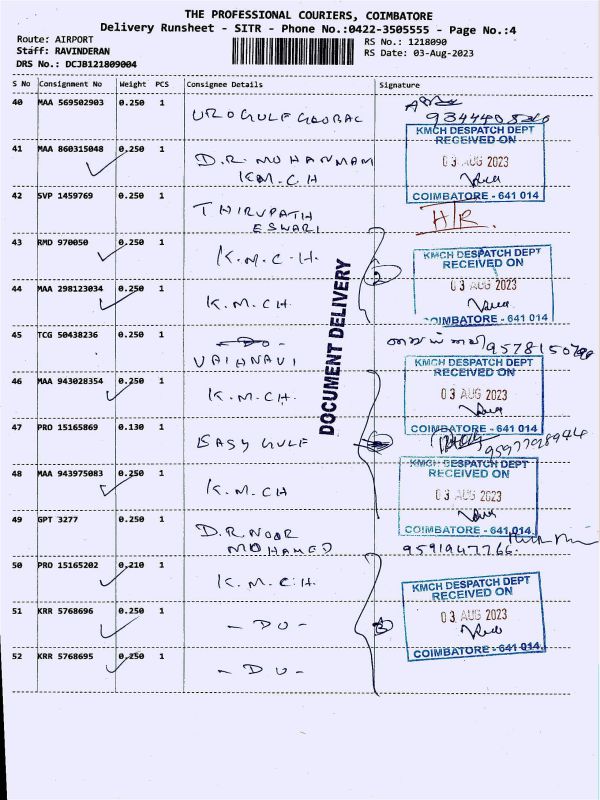 THE PROFESSIONAL COURIERS, COIMBATORE
Delivery Runsheet - SITR - Phone No.:0422-3505555 - Page No.:4
Route: AIRPORT
Staff: RAVINDERAN
DRS No.: DCJB121809004
RS No.: 1218090
RS Date: 03-Aug-2023
S No Consignment No Weight PCS Consignee Details Signature
40 MAA 569502903 0.250 1
9344408520
KMCH DESPATCH DEPT
RECEIVED ON
03 AUG 2023
COIMBATORE - 641 014
41 MAA 860315048 0.250 1 D.R. MOHANMAM
K.M.C.H
42 SVP 1459769 0.250 1 THIRUPATH
ESWARI
H/R.
43 RMD 970050 0.250 1 K.M.C.H.
KMCH DESPATCH DEPT
RECEIVED ON
03 AUG 2023
COIMBATORE - 641 014
44 MAA 298123034 0.250 1 K.M.CH.
DOCUMENT DELIVERY
45 TCG 50438236 0.250 1 -DO-
VAIHNAVI
KMCH DESPATCH DEPT
RECEIVED ON
03 AUG 2023
COIMBATORE - 641 014
46 MAA 943028354 0.250 1 K.M.CH.
47 PRO 15165869 0.130 1 EASY GULF
KMCH DESPATCH DEPT
RECEIVED ON
03 AUG 2023
COIMBATORE - 641 014
48 MAA 943975083 0.250 1 K.M.CH
49 GPT 3277 0.250 1 D.R. NOOR
MOHAMED
9591947766.
50 PRO 15165202 0.210 1 K.M.C.H.
KMCH DESPATCH DEPT
RECEIVED ON
03 AUG 2023
COIMBATORE - 641 014
51 KRR 5768696 0.250 1 - DO -
52 KRR 5768695 0.250 1 - DO -